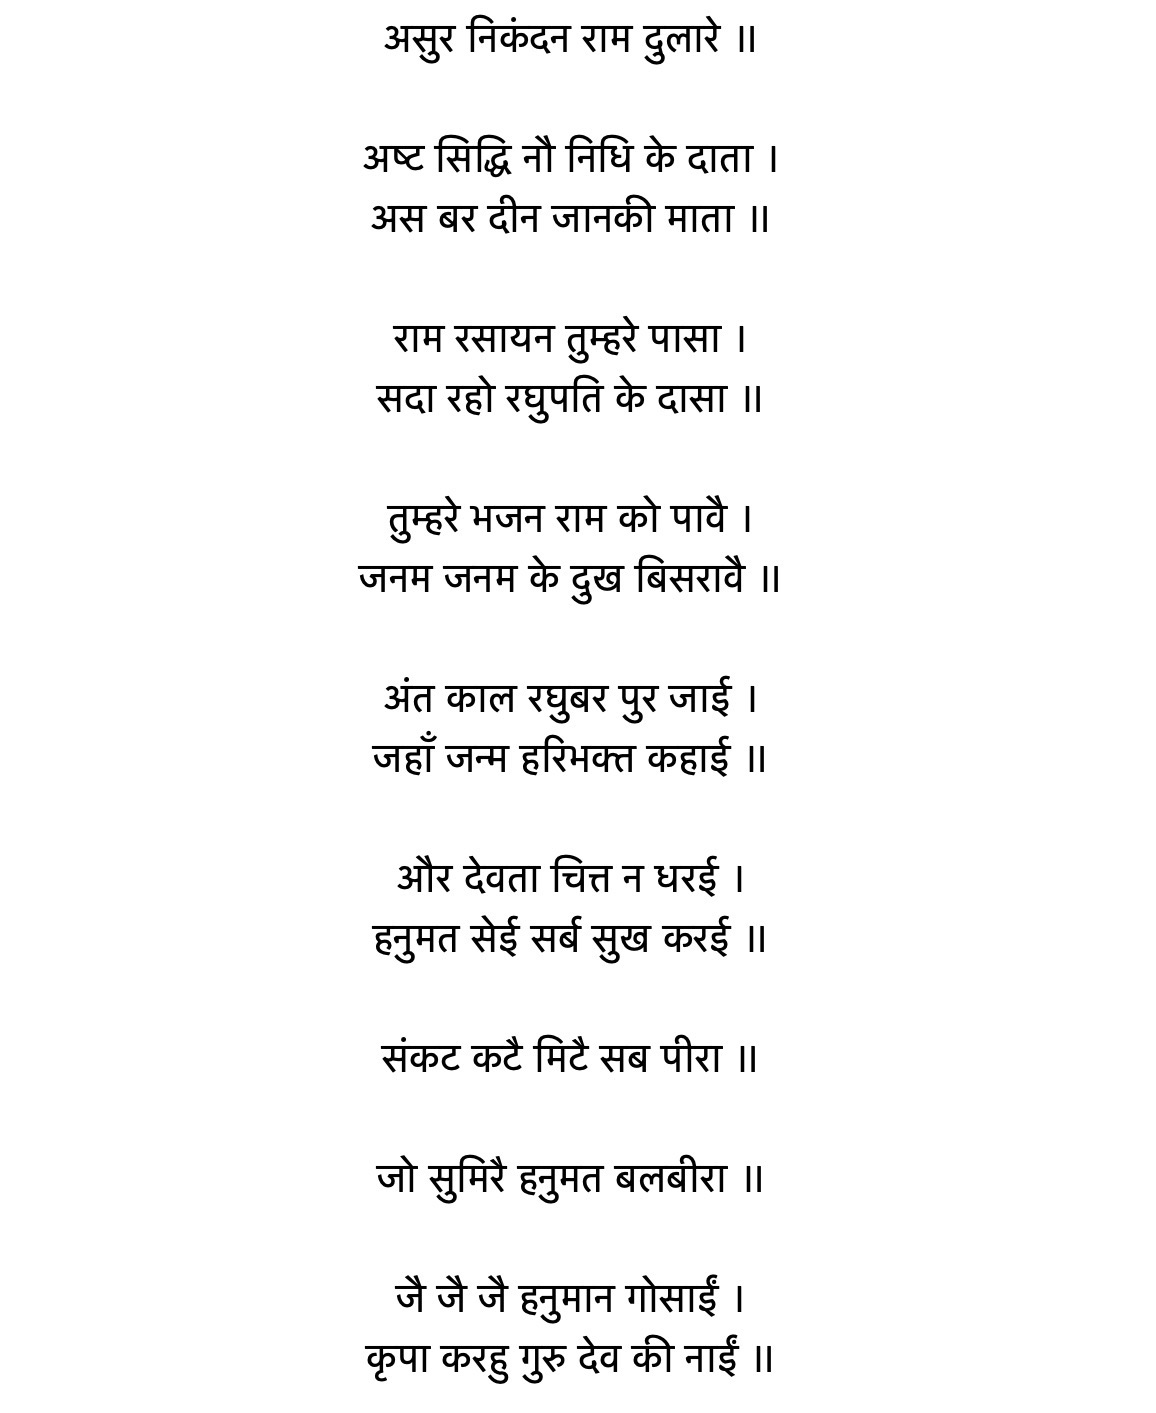 असुर निकंदन राम दुलारे ॥
अष्ट सिद्धि नौ निधि के दाता ।
अस बर दीन जानकी माता ॥
राम रसायन तुम्हरे पासा ।
सदा रहो रघुपति के दासा ॥
तुम्हरे भजन राम को पावै ।
जनम जनम के दुख बिसरावै ॥
अंत काल रघुबर पुर जाई ।
जहाँ जन्म हरिभक्त कहाई ॥
और देवता चित्त न धरई ।
हनुमत सेई सर्ब सुख करई ॥
संकट कटै मिटै सब पीरा ॥
जो सुमिरै हनुमत बलबीरा ॥
जै जै जै हनुमान गोसाईं ।
कृपा करहु गुरु देव की नाईं ॥